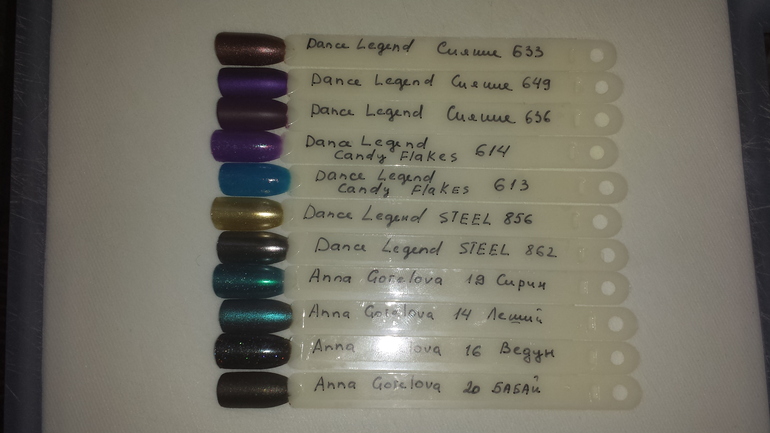 Dance Legend Сияние 633
Dance Legend Сияние 649
Dance Legend Сияние 636
Dance Legend
Candy Flakes 614
Dance Legend
Candy Flakes 613
Dance Legend STEEL 856
Dance Legend STEEL 862
Anna Gorelova 19 Сирин
Anna Gorelova 14 Леший
Anna Gorelova 16 Ведун
Anna Gorelova 20 БАБАЙ